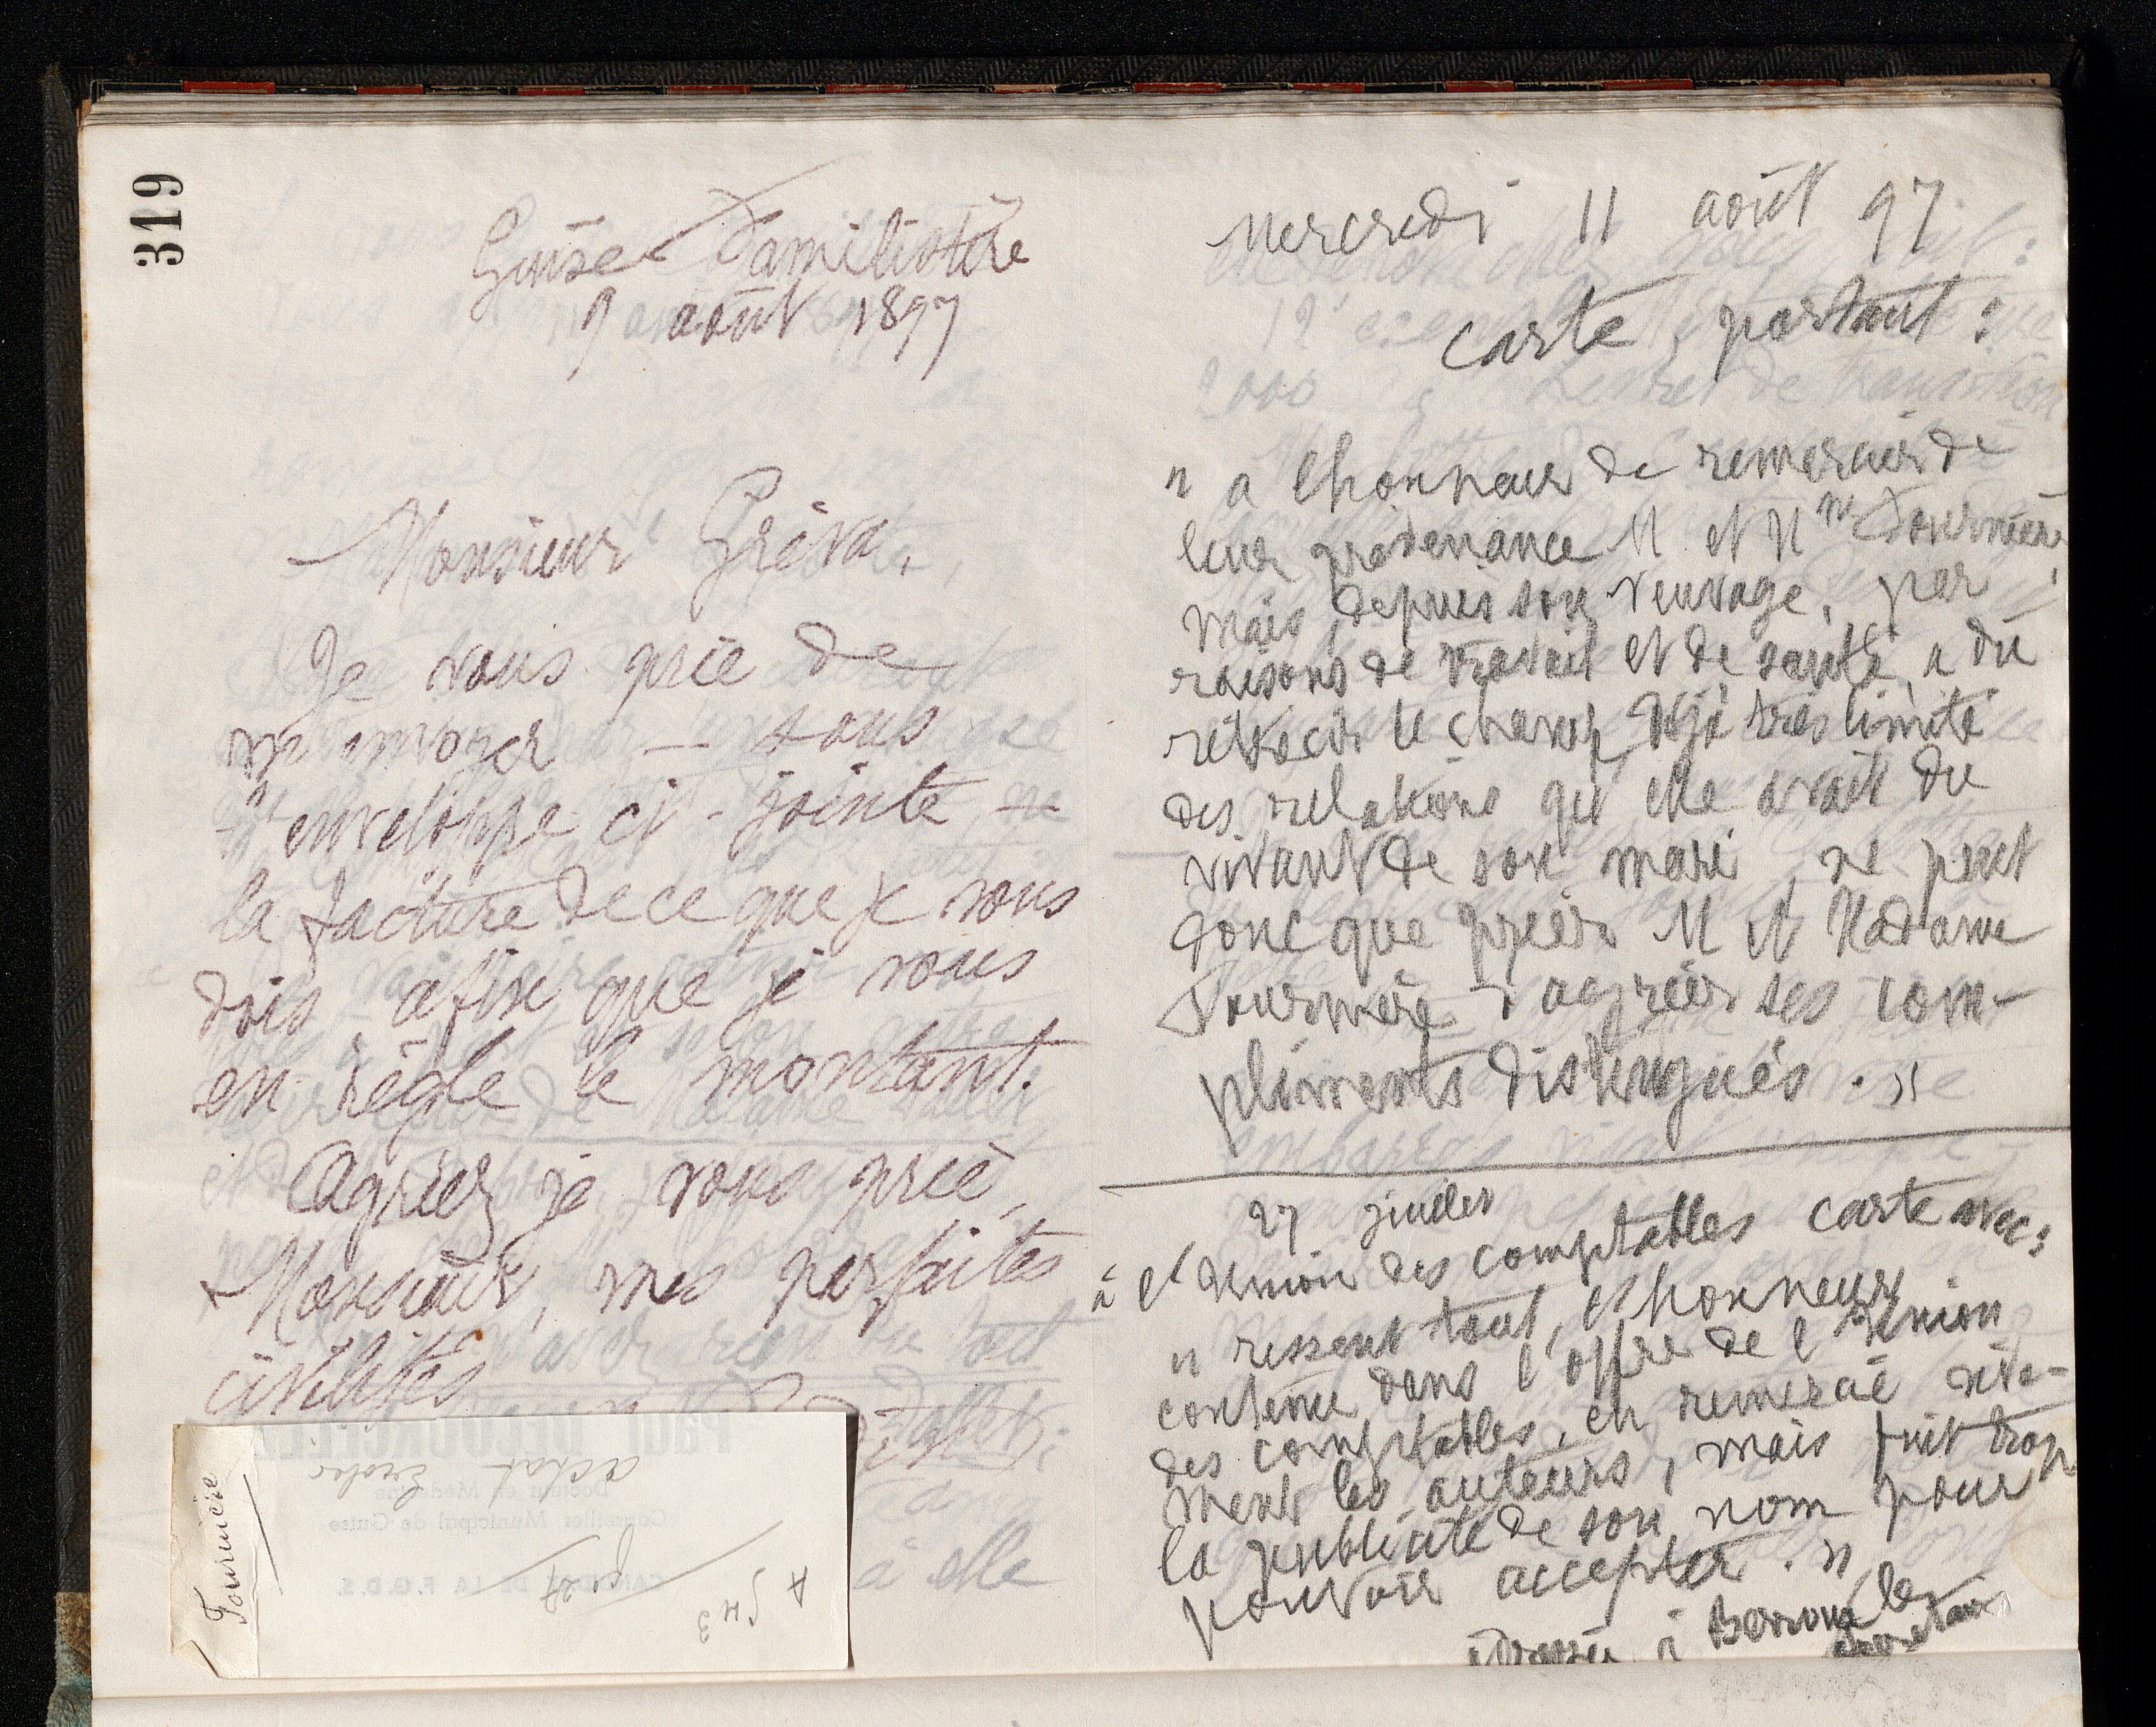 319
Guise Familistère
9 août 1897
Monsieur Gréva,
Je vous prie de
m'envoyer — sous
l'enveloppe ci-jointe —
la facture de ce que je vous
dois, afin que je vous
en règle le montant.
Agréez je vous prie,
Monsieur, mes parfaites
civilités
Fournière
achat
543
à elle
Mercredi 11 août 97
carte, portant :
" a l'honneur de remercier de
leur prévenance M. et Mme Fournière,
mais, depuis son veuvage, par
raisons de travail et de santé, a dû
rétrécir le champ déjà très limité
des relations qu'elle avait du
vivant de son mari, ne peut
donc que prier M et Madame
Fournière d'agréer ses com-
pliments distingués. "
27 juillet
à l'Union des comptables carte avec :
" ressent tout l'honneur
contenu dans l'offre de l'Union
des comptables, en remercie vive-
ment les auteurs, mais fuit trop
la publicité de son nom pour
pouvoir accepter. "
à